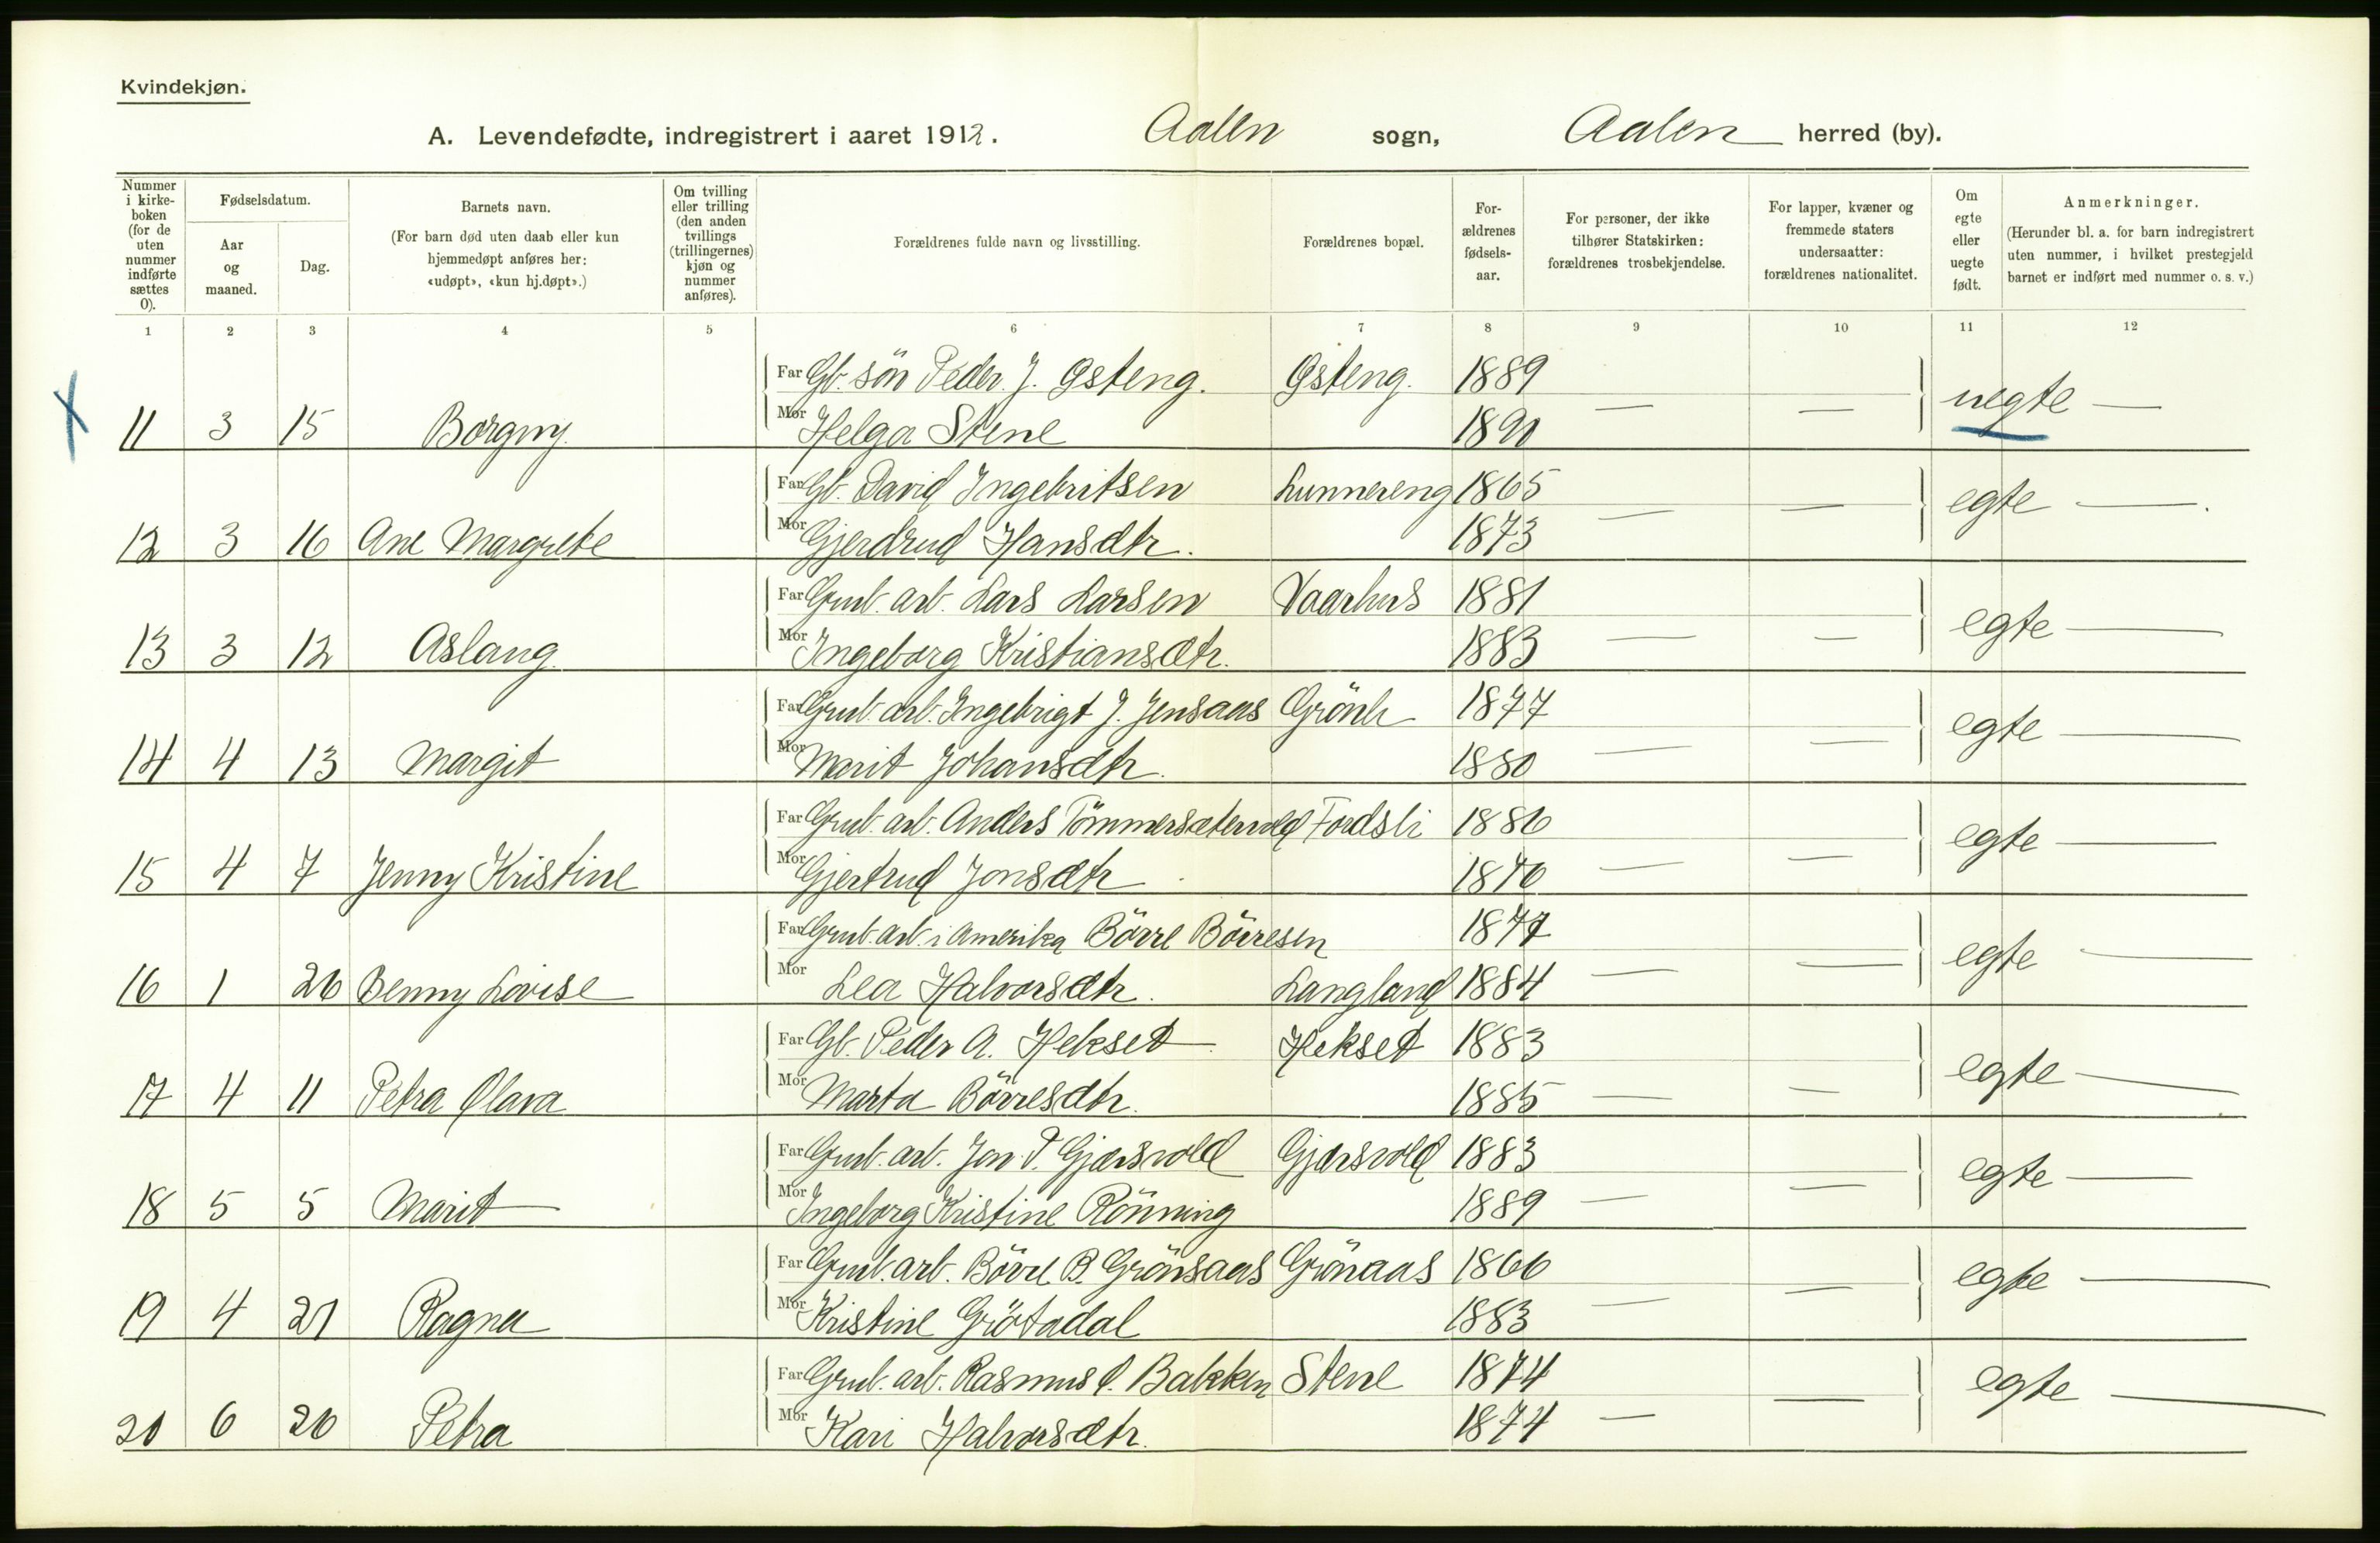 Kvindekjøn.
A. Levendefødte, indregistrert i aaret 1912. Aalen sogn, Aalen herred (by).
Nummer i kirkeboken (for de uten nummer indførte sættes 0).
Fødselsdatum.
Aar og maaned.
Dag.
Barnets navn.
(For barn død uten daab eller kun hjemmedøpt anføres her: «udøpt», «kun hj.døpt».)
Om tvilling eller trilling (den anden tvillings (trillingernes) kjøn og nummer anføres).
Forældrenes fulde navn og livsstilling.
Forældrenes bopæl.
Forældrenes fødselsaar.
For personer, der ikke tilhører Statskirken: forældrenes trosbekjendelse.
For lapper, kvæner og fremmede staters undersaatter: forældrenes nationalitet.
Om egte eller uegte født.
Anmerkninger.
(Herunder bl. a. for barn indregistrert uten nummer, i hvilket prestegjeld barnet er indført med nummer o. s. v.)
1 2 3 4 5 6 7 8 9 10 11 12
Far Gb. sön Peder J. Østeng. Østeng. 1889
11 3 15 Borgny. Mor Helga Stene 1890 — — uegte —
Far Gb. David Ingebritsen Lunnereng 1865
12 3 16 Ane Margrete Mor Gjerdrud Hansdtr. 1873 — — egte —
Far Grub. arb. Lars Larsen Vaarhus 1881
13 3 12 Aslaug. Mor Ingeborg Kristiansdtr. 1883 — — egte —
Far Grub. arb. Ingebrigt J. Jensaas 1877
14 4 13 Margit Mor Marit Johansdtr. 1880 — — egte —
Far Grub. arb. Anders Tömmersætervold Fordsli 1886
15 4 7 Jenny Kristine Mor Gjertrud Jonsdtr 1876 — — egte —
Far Grub. arb. i Amerika Börre Börresen 1877
16 1 26 Benny Lovise Mor Lea Halvorsdtr. Langland 1884 — — egte —
Far Gb. Peder A. Hekset Hekset 1883
17 4 11 Petra Olava Mor Marta Börresdtr. 1885 — — egte —
Far Grub. arb. Jon P. Gjærsvold Gjærsvold 1883
18 5 5 Marit Mor Ingeborg Kristine Rönning 1889 — — egte —
Far Grub. arb. Börre B. Grönsaas Grönaas 1866
19 4 21 Ragna Mor Kristine Grötadal 1883 — — egte —
Far Grub. arb. Rasmus O. Bakken Stene 1874
20 6 20 Petra Mor Kari Halvorsdtr. 1874 — — egte —